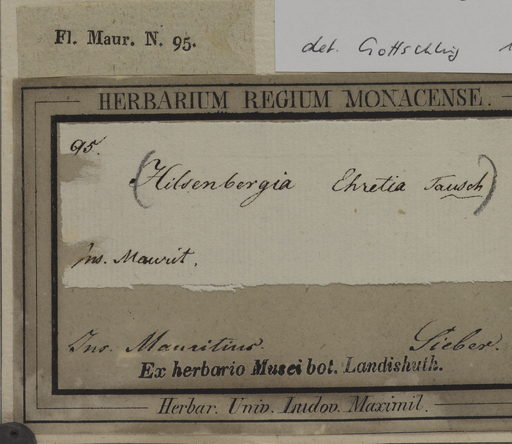 Fl. Maur. N. 95.
det. Gottschling
HERBARIUM REGIUM MONACENSE.
95.
(Hilsenbergia Ehretia Tausch)
Ins. Maurit.
Ins. Mauritius. Sieber.
Ex herbario Musei bot. Landishuth.
Herbar. Univ. Ludov. Maximil.